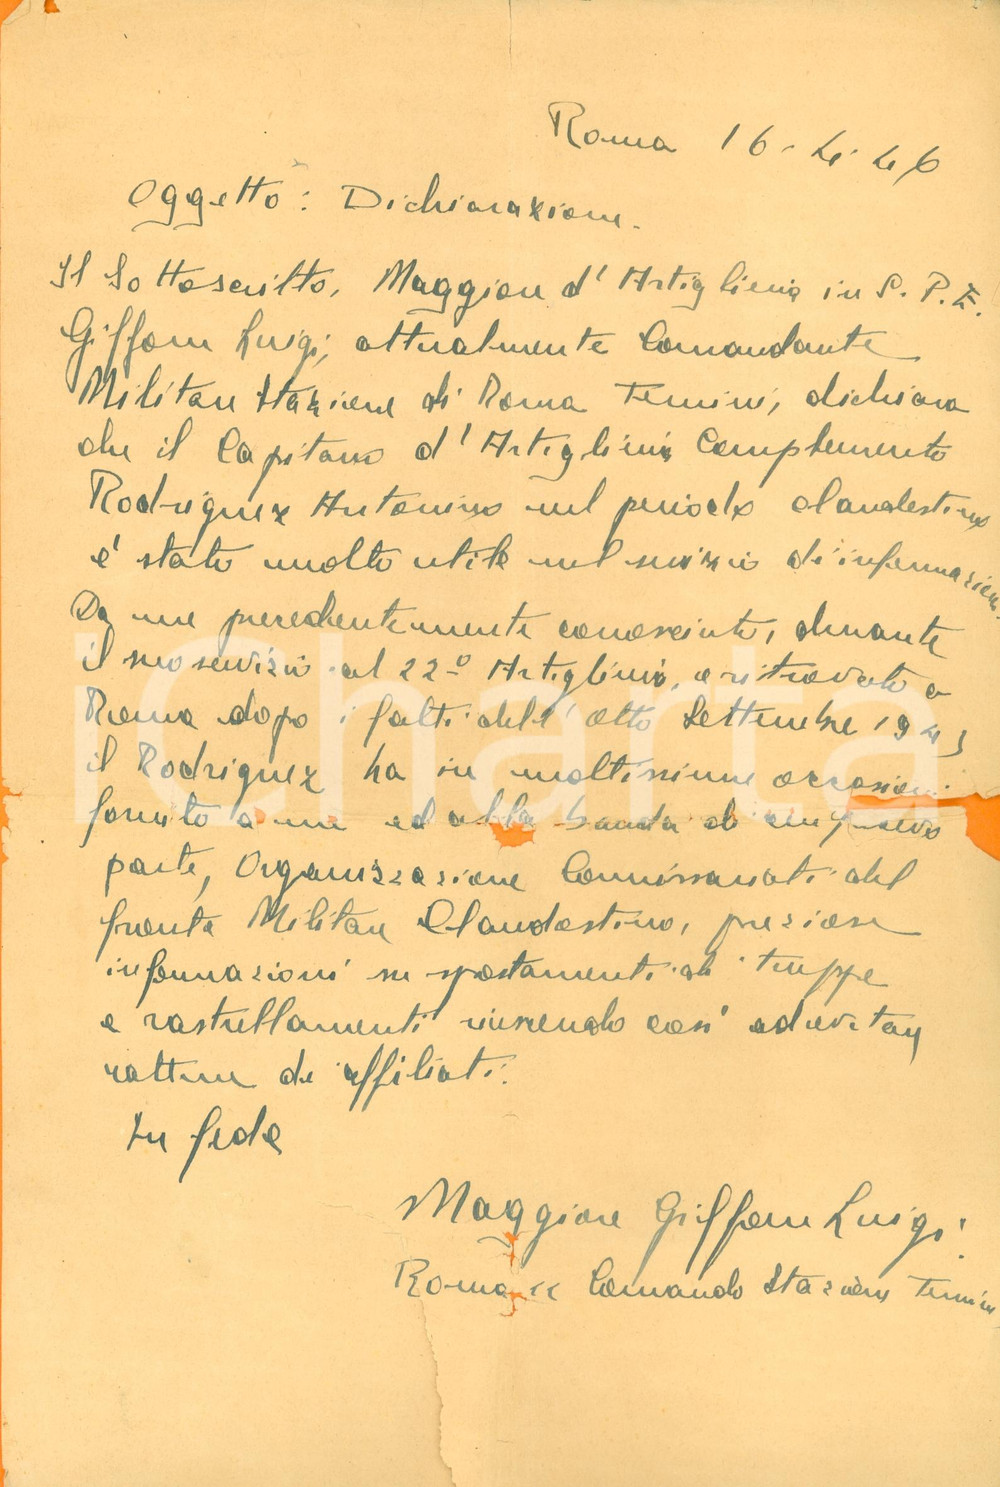 Roma 16-4-46
Oggetto: Dichiarazione.
Il Sottoscritto, Maggiore d'Artiglieria in S.P.E.
Giffoni Luigi, attualmente Comandante
Militare Stazione di Roma Termini, dichiara
che il Capitano d'Artiglieria Complemento
Rodriguez Antonino nel periodo clandestino
è stato molto utile nel servizio di informazioni.
Da me precedentemente conosciuto, durante
il suo servizio al 22º Artiglieria, e ritrovato a
Roma dopo i fatti dell'otto Settembre 1943
il Rodriguez ha in moltissime occasioni
fornito a me ed alla banda di cui facevo
parte, Organizzazione Commissariati del
fronte Militare Clandestino, preziose
informazioni su spostamenti di truppe
e rastrellamenti riuscendo così ad evitare
catture di affiliati.
In fede
Maggiore Giffoni Luigi
Roma Comando Stazione Termini
iCharta